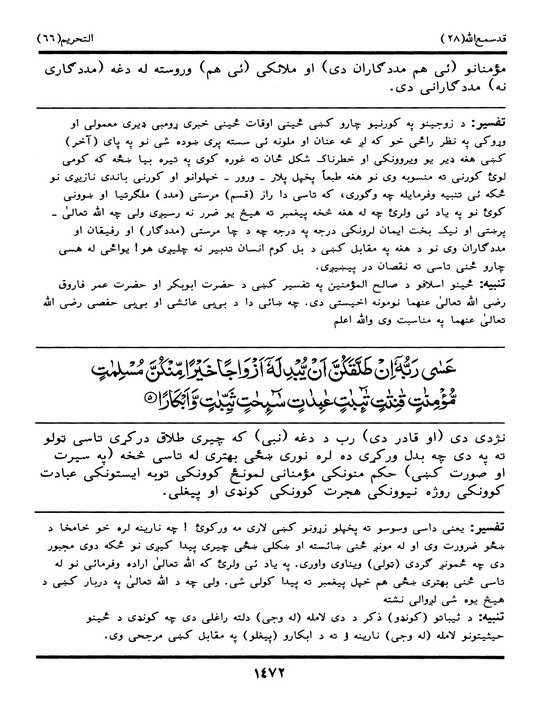 قدسمع الله (٢٨)
التحريم (٦٦)
مؤمنانو (ئی هم مددګاران دی) او ملائکی (ئی هم) وروسته له دغه (مددګاری
نه) مددګارانی دی.
تفسیر: د زوجینو په کورنیو چارو کښی ځینی اوقات ځینی خبری ړومبی ډیری معمولی او
وړوکی په نظر راځی خو که لږ څه عنان او ملونه ئی سسته پری ښوده شی نو په پای (آخر)
کښی هغه ډیر یو ویروونکی او خطرناک شکل ځان ته غوره کوی په تیره بیا ښځه که کومی
لوئ کورنی ته منسوبه وی نو هغه طبعاً پخپل پلار ـ ورور ـ خپلوانو او کورنی باندی نازیږی نو
ځکه ئی تنبیه وفرمایله چه وګوری، که تاسی دا راز (قسم) مرستی (مدد) ملګرتیا او ښوونی
کوئ نو په یاد ئی ولرئ چه له هغه څخه پیغمبر ته هیڅ یو ضرر نه رسیږی ولی چه الله تعالیٰ ـ
پرښتی او نیک بخت ایمان لرونکی درجه په درجه چه د چا مرستی (مددګار) او رفیقان او
مددګاران وی نو د هغه په مقابل کښی د بل کوم انسان تدبیر نه چلیږی هو! یواځی له هسی
چارو ځنی تاسی ته نقصان در پیښیږی.
تنبیه: ځینو اسلافو د صالح المؤمنین په تفسیر کښی د حضرت ابوبکر او حضرت عمر فاروق
رضی الله تعالیٰ عنهما نومونه اخیستی دی. چه ښائی دا د بی‌بی عائشی او بی‌بی حفصی رضی الله
تعالیٰ عنهما په مناسبت وی والله اعلم
عَسٰى رَبُّهٗۤ اِنْ طَلَّقَكُنَّ اَنْ یُّبْدِلَهٗۤ اَزْوَاجًا خَیْرًا مِّنْكُنَّ مُسْلِمٰتٍ
مُّؤْمِنٰتٍ قٰنِتٰتٍ تٰٓئِبٰتٍ عٰبِدٰتٍ سٰٓئِحٰتٍ ثَیِّبٰتٍ وَّ اَبْكَارًا ۝۵
نژدی دی (او قادر دی) رب د دغه (نبی) که چیری طلاق درکړی تاسی ټولو
ته په دی چه بدل ورکړی ده لره نوری ښځی بهتری له تاسی څخه (په سیرت
او صورت کښی) حکم منونکی مؤمنانی لمونځ کوونکی توبه ایستونکی عبادت
کوونکی روژه نیوونکی هجرت کوونکی کونډی او پیغلی.
تفسیر: یعنی داسی وسوسو ته پخپلو زړونو کښی لاری مه ورکوئ! چه نارینه لره خو خامخا د
ښځو ضرورت وی او له مونږ ځنی ښائسته او ښکلی ښځی چیری پیدا کیږی نو ځکه دوی مجبور
دی چه ځمونږ ګردی (ټولی) ویناوی واوری. په یاد ئی ولری که الله تعالیٰ اراده وفرمائی نو له
تاسی ځنی بهتری ښځی هم خپل پیغمبر ته پیدا کولی شی. ولی چه د الله تعالیٰ په دربار کښی د
هیڅ یوه شی لږوالی نشته
تنبیه: د ثیباتو (کونډو) ذکر د دی لامله (له وجی) دلته راغلی دی چه کونډی د ځینو
حیثیتونو لامله (له وجی) نارینه ؤ ته د ابکارو (پیغلو) په مقابل کښی مرجحی وی.
١٤٧٢